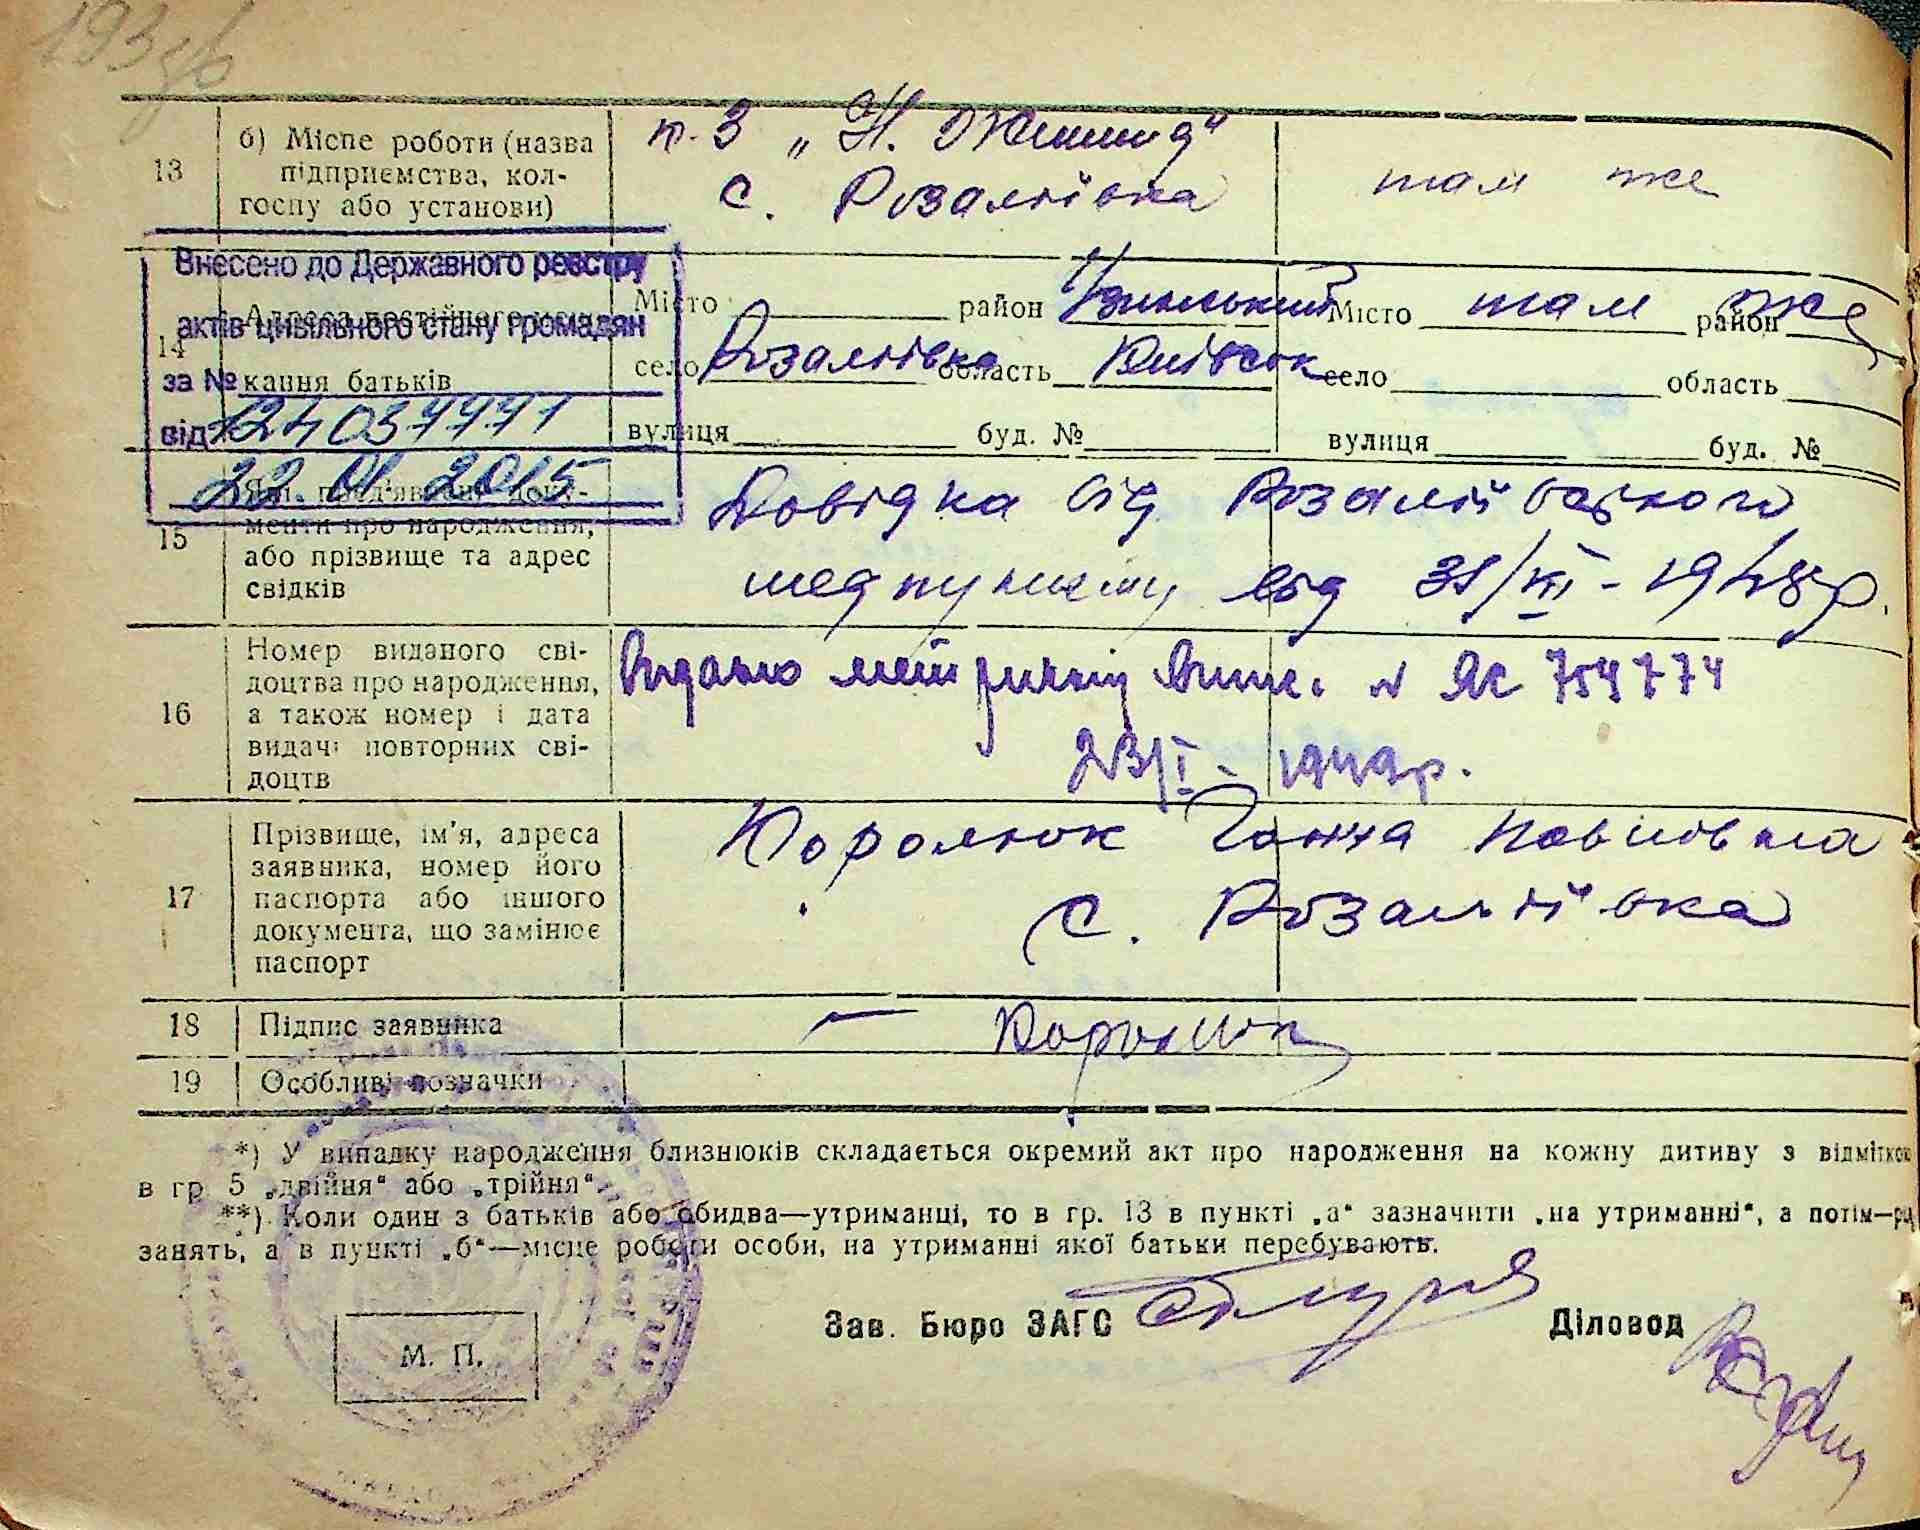 193 зв
13
б) Місце роботи (назва
підприємства, кол-
госпу або установи)
к-з „Н. Життя"
с. Розаліївка
там же
Внесено до Державного реєстру
актів цивільного стану громадян
за №
від 124037771
22.01.2015
14
Адреса постійного
кання батьків
Місто район Узинський
село Розаліївка область Київськ
вулиця буд. №
Місто там же район
село область
вулиця буд. №
15
Які пред'явлені доку-
менти про народження,
або прізвище та адрес
свідків
Довідка від Розаліївського
медпункту від 31/XII-1948 р.
16
Номер виданого сві-
доцтва про народження,
а також номер і дата
видачі повторних сві-
доцтв
Видано метричну випис. № ЯС 754774
23/I - 1949р.
17
Прізвище, ім'я, адреса
заявника, номер його
паспорта або іншого
документа, що замінює
паспорт
Королюк Ганна Павловна
с. Розаліївка
18
Підпис заявника
— Королюк
19
Особливі позначки
*) У випадку народження близнюків складається окремий акт про народження на кожну дитину з відміткою
в гр 5 „двійня" або „трійня".
**) Коли один з батьків або обидва—утриманці, то в гр. 13 в пункті „а" зазначити „на утриманні", а потім—рід
занять, а в пункті „б"—місце роботи особи, на утриманні якої батьки перебувають.
Зав. Бюро ЗАГС
Діловод
М. П.